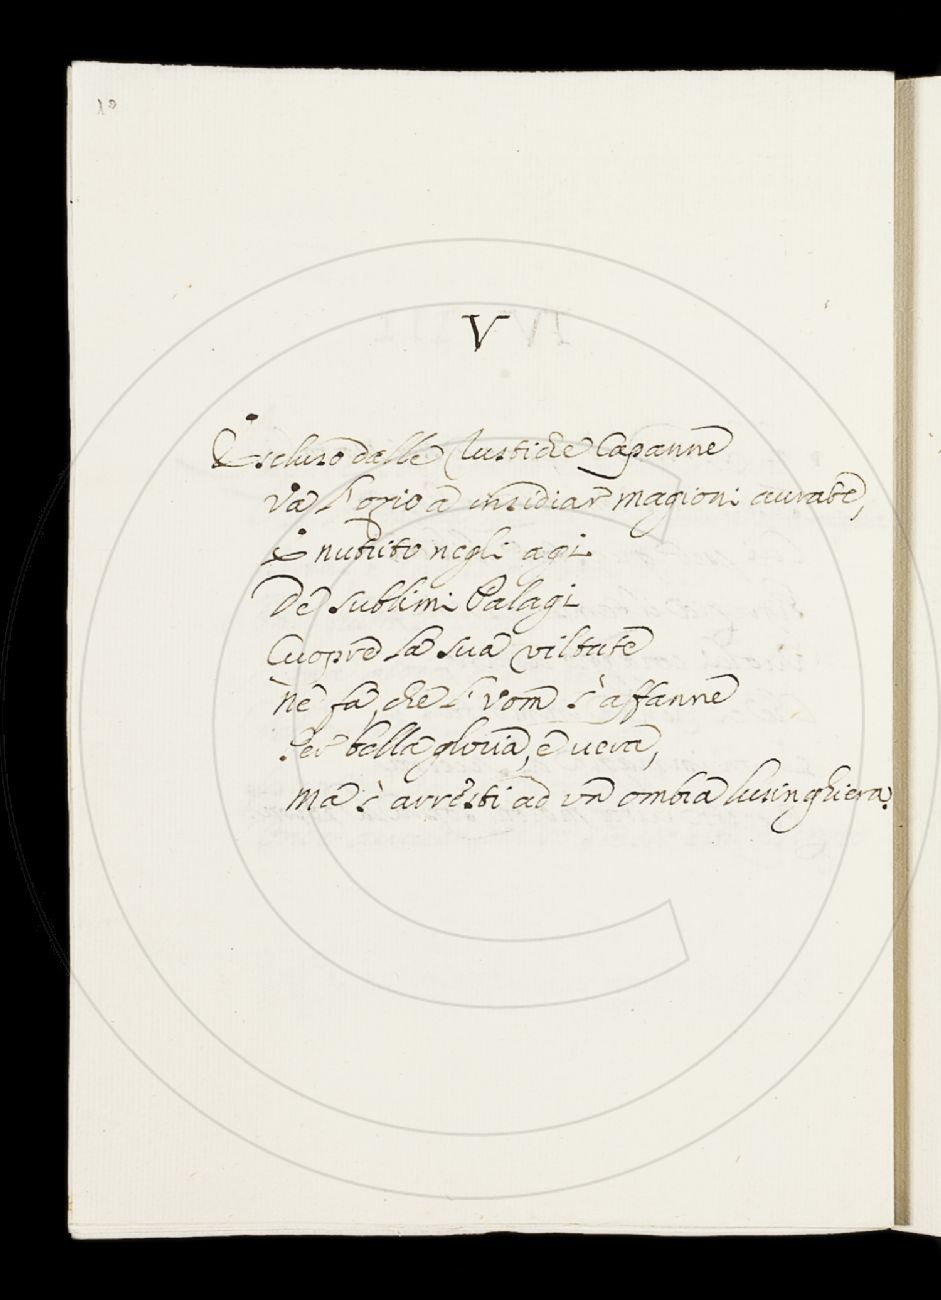 10
V
Escluso dalle rustiche Capanne
Va l'ozio a insidiar magioni aurate,
E nutrito negli agi
De' sublimi Palagi
Cuopre la sua viltate
Nè fa, che l'vom s'affanne
Per bella gloria, e vera,
Ma s'arresti ad un ombra lusinghiera.